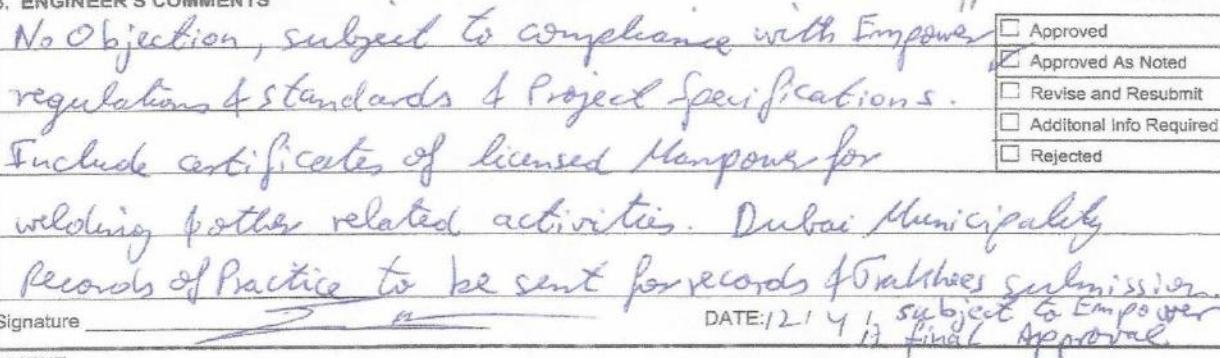 ENGINEER'S COMMENTS
No Objection, subject to compliance with Empower
regulations & Standards & Project Specifications.
Include certificates of licensed Manpower for
welding & other related activities. Dubai Municipality
Records of Practice to be sent for records & submission.
subject to Empower
final Approval
Approved
Approved As Noted
Revise and Resubmit
Additonal Info Required
Rejected
Signature
DATE: 12/4/